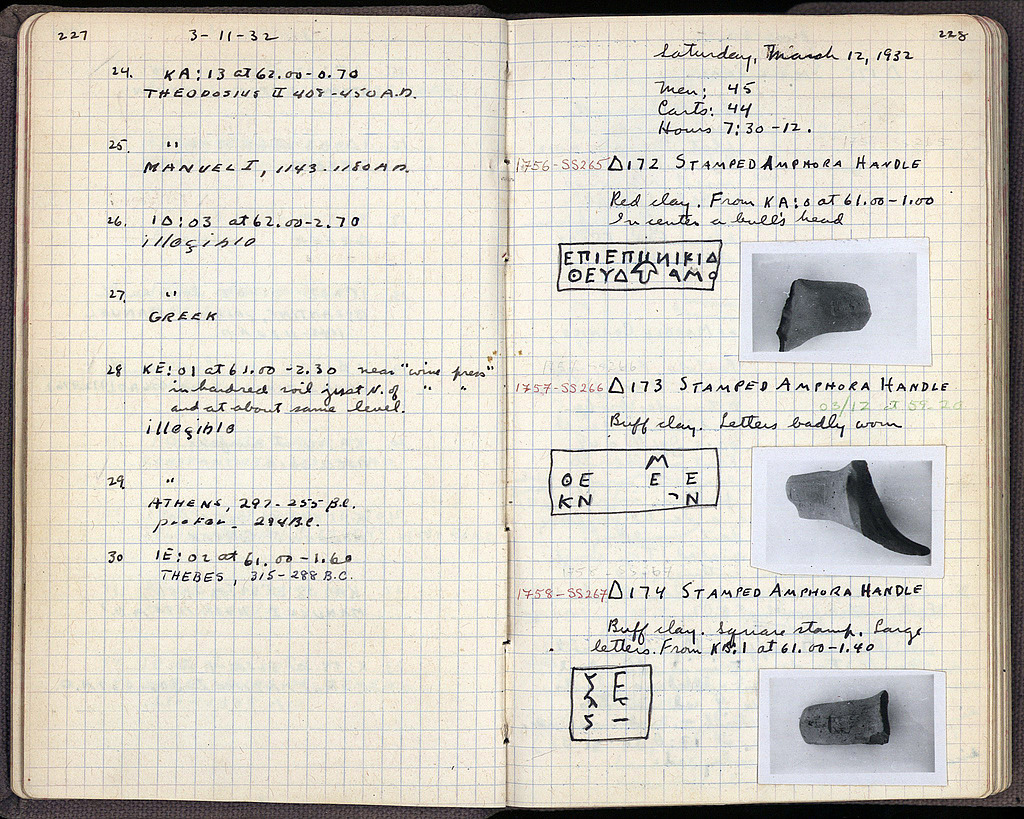 227
3-11-32
24. KA:13 at 62.00-0.70
THEODOSIUS II 408-450 A.D.
25. "
MANUEL I, 1143-1180 A.D.
26. ΙΔ:03 at 62.00-2.70
illegible
27. "
GREEK
28 KE:01 at 61.00-2.30 near "wine press"
in hardred soil just N. of " "
and at about same level.
illegible
29. "
ATHENS, 297-255 B.C.
294 B.C.
30 IE:02 at 61.00-1.60
THEBES, 315-288 B.C.
228
Saturday, March 12, 1932
Men; 45
Carts: 44
Hours 7:30-12.
1756-SS265 Δ172 STAMPED AMPHORA HANDLE
Red clay. From KA:0 at 61.00-1.00
In center a bull's head
ΘΕΥΔ ΑΜΟ
1757-SS266 Δ173 STAMPED AMPHORA HANDLE
03/12 at 59.20
Buff clay. Letters badly worn
M
ΘΕ Ε Ε
ΚΝ Ν
1758-SS267 Δ174 STAMPED AMPHORA HANDLE
Buff clay. Square stamp. Large
letters. From KB:1 at 61.00-1.40